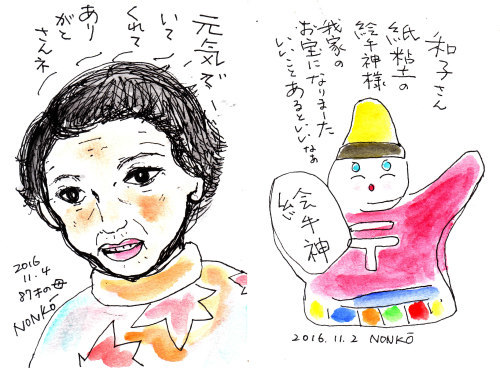 元気で
いて
くれて
あり
がと
さんネ
2016
11.4
87才の母
NONKŌ
和子さん
紙粘土の
絵手神様
我家の
お宝になりました
いいことあるといいなぁ
絵手神
〒
2016.11.2 NONKŌ